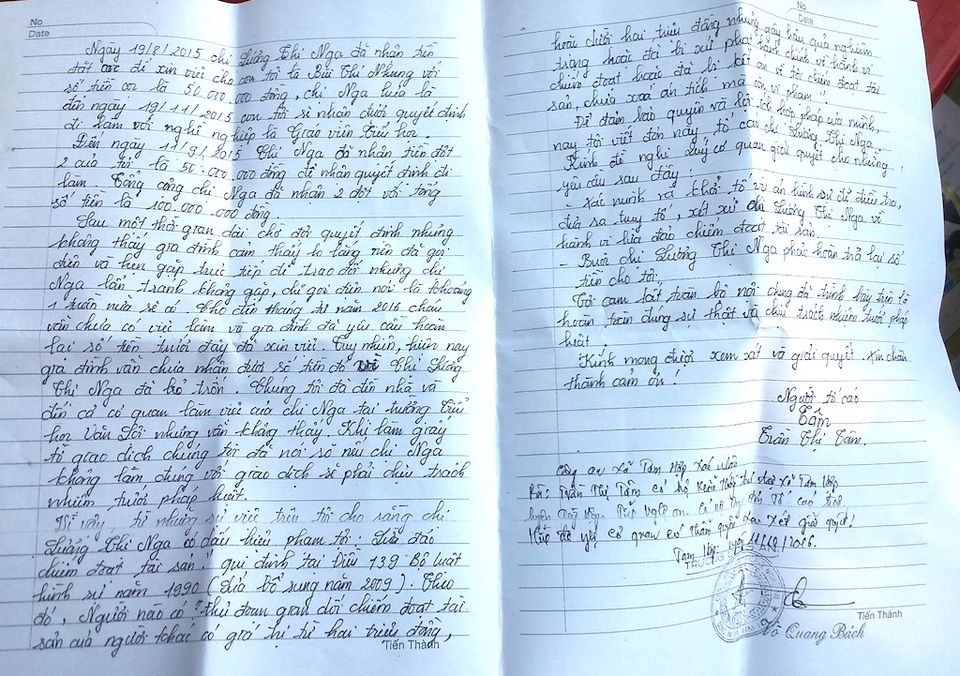 No
Date
Ngày 19/8/2015 chị Lương Thị Nga đã nhận tiền
đặt cọc để xin việc cho con tôi là Bùi Thị Nhung với
số tiền cọc là 50.000.000 đồng, chị Nga hứa là
đến ngày 19/11/2015 con tôi sẽ nhận được quyết định
đi làm với nghề nghiệp là Giáo viên Tiểu học.
Đến ngày 11/9/2015 Thị Nga đã nhận tiền đợt
2 của tôi là 50.000.000 đồng để nhận quyết định đi
làm. Tổng cộng chị Nga đã nhận 2 đợt với tổng
số tiền là 100.000.000 đồng.
Sau một thời gian dài chờ đợi quyết định nhưng
không thấy gia đình cảm thấy lo lắng nên đã gọi
điện và hẹn gặp trực tiếp để trao đổi nhưng chị
Nga lẩn tránh không gặp, chỉ gọi điện nói là khoảng
1 tuần nữa sẽ có. Cho đến tháng tư năm 2016 cháu
vẫn chưa có việc làm và gia đình đã yêu cầu hoàn
lại số tiền trước đây đã xin việc. Tuy nhiên, hiện nay
gia đình vẫn chưa nhận được số tiền đó Thị Lương
Thị Nga đã bỏ trốn. Chúng tôi đã đến nhà và
đến cả cơ quan làm việc của chị Nga tại trường Tiểu
học Văn Lợi nhưng vẫn không thấy. Khi làm giấy
tờ giao dịch chúng tôi đã nói rõ nếu chị Nga
không làm đúng với giao dịch sẽ phải chịu trách
nhiệm trước pháp luật.
Vì vậy, từ những sự việc trên tôi cho rằng chị
Lương Thị Nga có dấu hiệu phạm tội: "Lừa đảo
chiếm đoạt tài sản" qui định tại Điều 139 Bộ luật
hình sự năm 1990 (sửa bổ sung năm 2009). Theo
đó, Người nào có thủ đoạn gian dối chiếm đoạt tài
sản của người khác có giá trị từ hai triệu đồng,
Tiến Thành
No
Date
hoặc dưới hai triệu đồng nhưng gây hậu quả nghiêm
trọng hoặc đã bị xử phạt hành chính về hành vi
chiếm đoạt hoặc đã bị kết án về tội chiếm đoạt tài
sản, chưa xoá án tích mà còn vi phạm".
Để đảm bảo quyền và lợi ích hợp pháp của mình,
nay tôi viết đơn này, tố cáo chị Lương Thị Nga.
Kính đề nghị quý cơ quan giải quyết cho những
yêu cầu sau đây:
- Xác minh và khởi tố vụ án hình sự để điều tra,
đưa ra truy tố, xét xử chị Lương Thị Nga về
hành vi lừa đảo chiếm đoạt tài sản.
- Buộc chị Lương Thị Nga phải hoàn trả lại số
tiền cho tôi.
Tôi cam kết toàn bộ nội dung đã trình bày trên là
hoàn toàn đúng sự thật và chịu trách nhiệm trước pháp
luật.
Kính mong được xem xét và giải quyết. Xin chân
thành cảm ơn!
Người tố cáo
Tâm
Trần Thị Tâm.
Công an xã Tam Hợp Xác nhận
Bà: Trần Thị Tâm có hộ khẩu thường trú tại xã Tam Hợp
huyện Quỳ Hợp, tỉnh Nghệ an.
cơ quan có thẩm quyền xem xét giải quyết!
Tam Hợp, 2016.
TRƯỞNG CÔNG AN
Tiến Thành
Võ Quang Bách